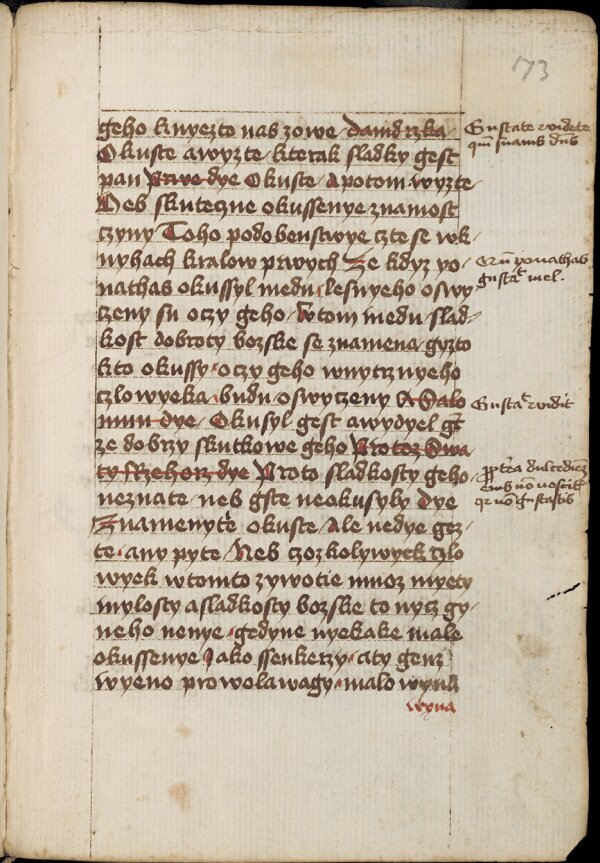 173
geho knyezto nas zowe / dawid rzka /
Okuste a wyzte / kterak sladky gest
pan Prwe dye Okuste / A potom wyzte /
Neb skuteczne okussenye znamost
czyny Toho podobenstwye czte se w k
nyhach kralow prwych Ze kdyz yo /
nathas okussyl medu lesnyeho oswy
czeny su oczy geho / W tom medu / slad /
kost dobroty bozske se znamena / gyzto
kto okussy / oczy geho wnytrznyeho
czlowyeka / budu oswyczeny A Salo
mun dye / Okusyl gest a wydyel gt
ze dobrzy skutkowe geho Protoz Swa
ty Rzehorz dye Proto sladkosty geho /
neznate / neb gste neokusyly dye
Znamenyte okuste / Ale nedye gez /
te / any pyte / Neb czozkolywyek czlo
wyek w tomto zywotie moz myety
mylosty a sladkosty bozske to nycz gy /
neho nenye / gedyne nyekake male
okussenye Jako ssenkerzy / aty genz
wyeno prowolawagy / malo wyna
wyna
Gustate et videte
qm suavis dns
gustat mel .
Gustat et vidit
eius no
qr no gustastis